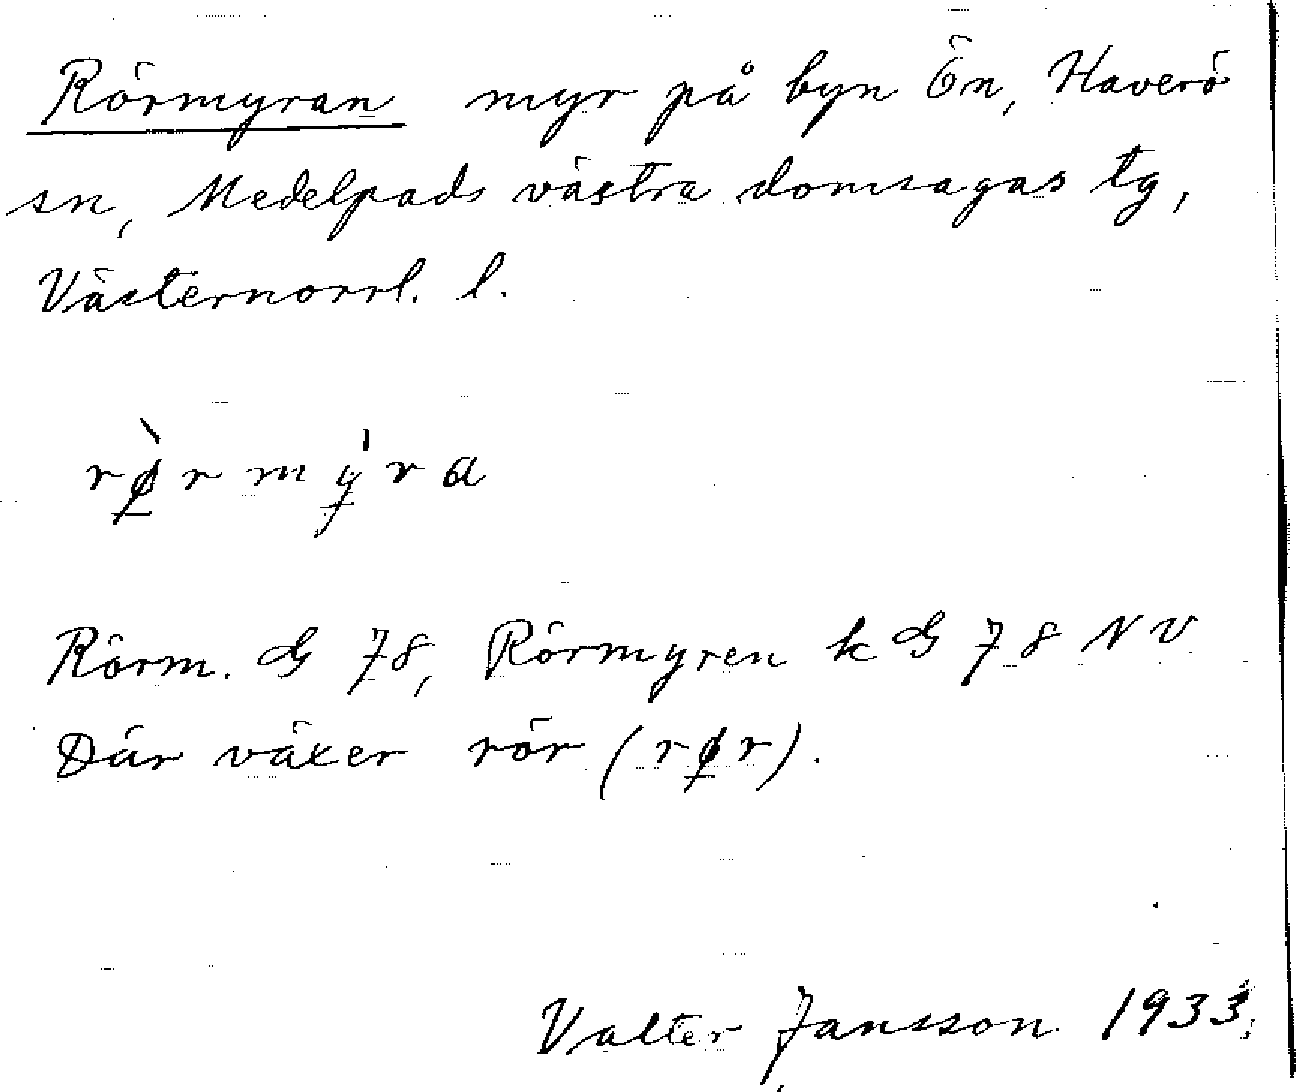 Rörmyran myr på byn Ön, Haverö
sn, Medelpads västra domsagas tg,
Västernorrl. l.
rø̀rmy̍ra
Rörm. G 78, Rörmyren k G 78 NV
Där växer rör (rør).
Valter Jansson 1933.